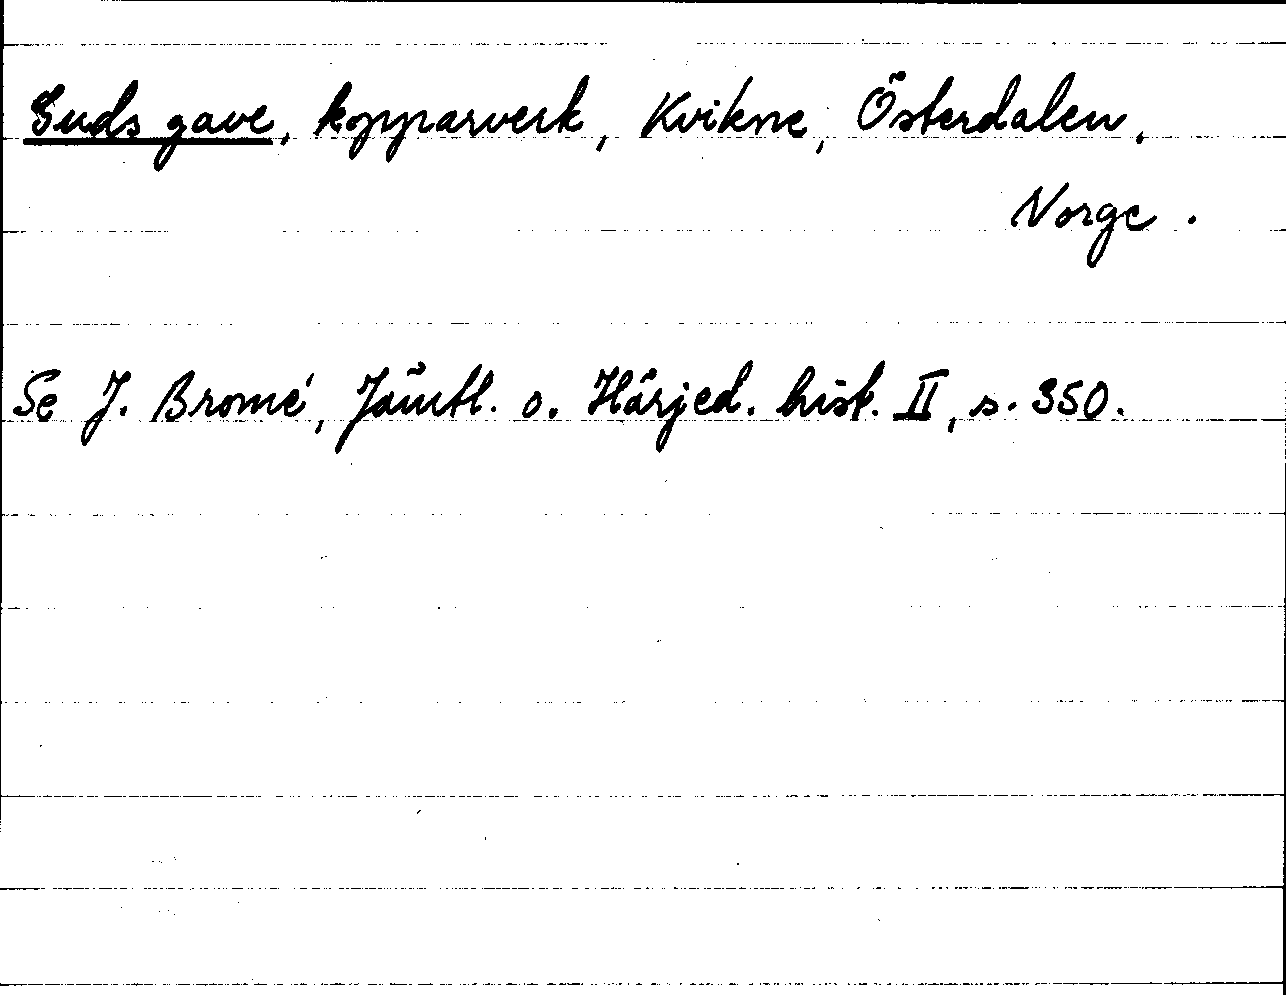 Guds gave, kopparverk, Kvikne, Österdalen,
Norge.
Se J. Bromé, Jämtl. o. Härjed. hist. II, s. 350.